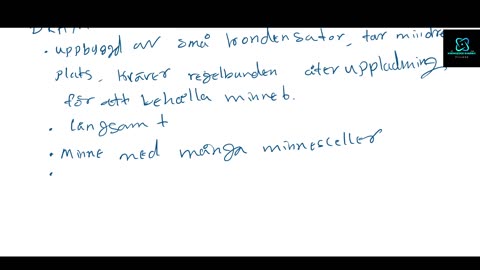 • uppbyggd av små kondensator, tar mindre
plats, kräver regelbunden återuppladning,
för att behålla minnet.
• långsamt
• minne med många minnesceller
•